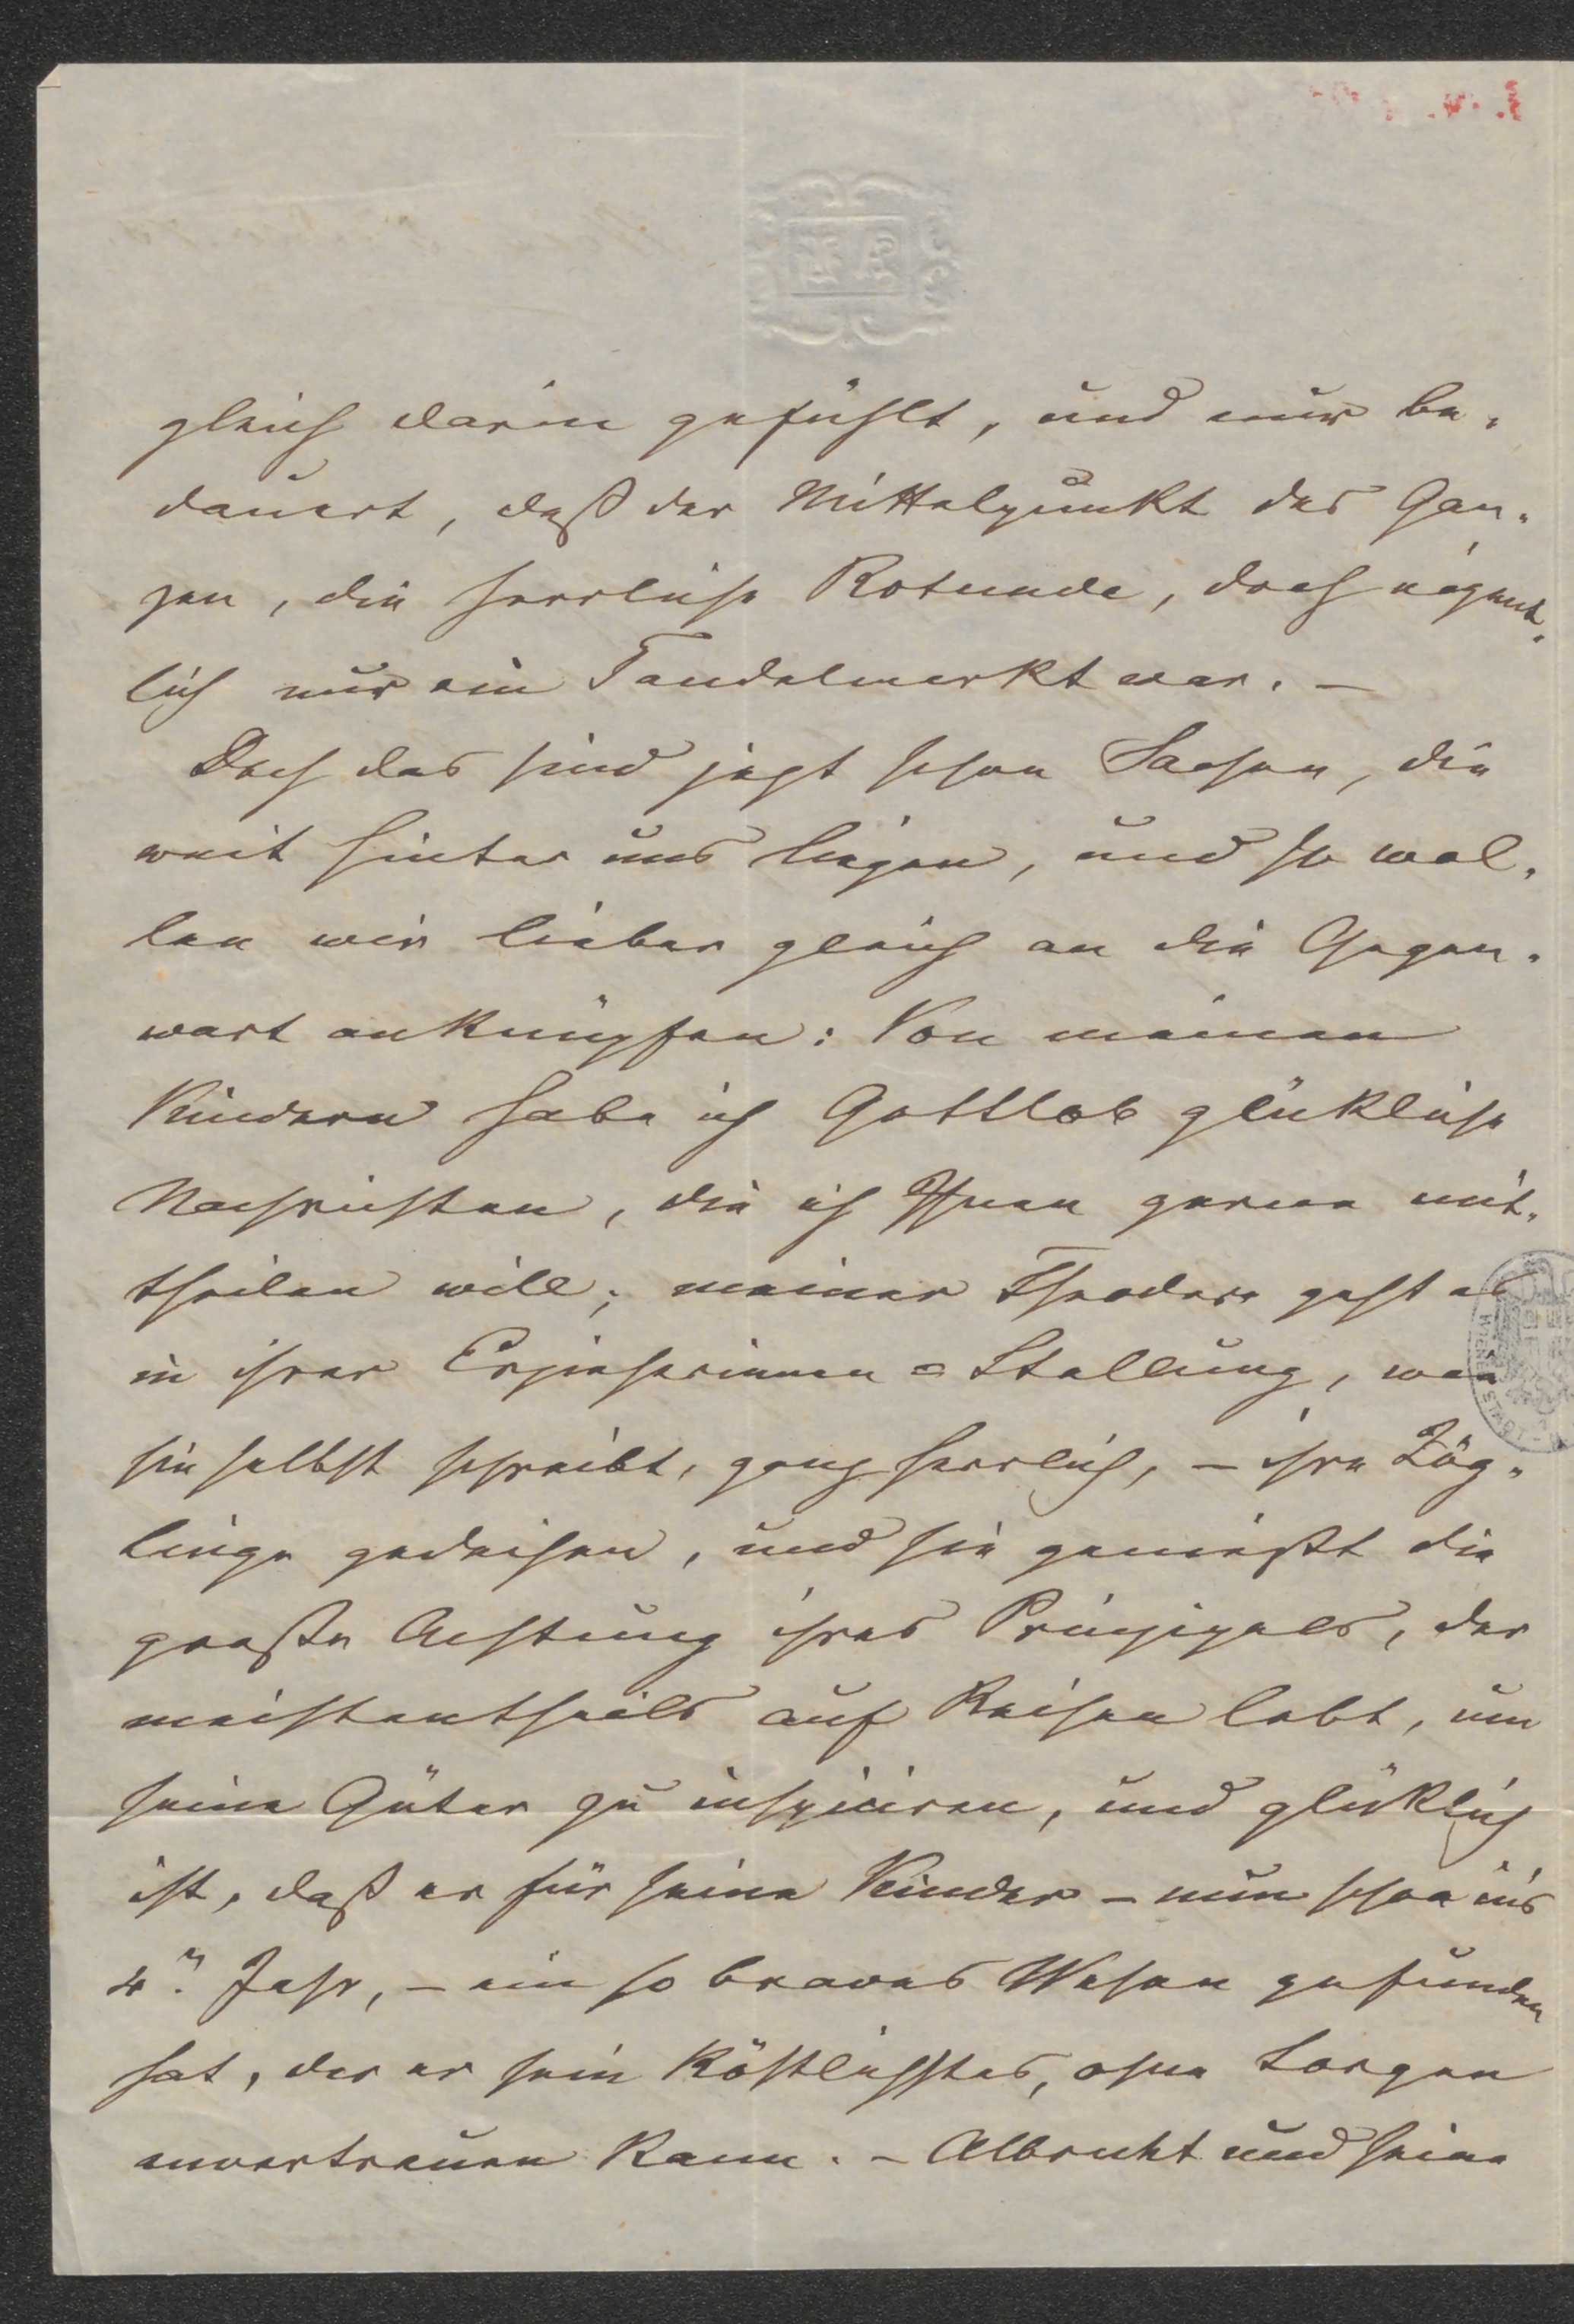 gleich darin gefühlt, und nur be-
dauert, daß der Mittelpunkt des Gan-
zen, die herrliche Rotunde, doch eigent-
lich nur ein Tandelmarkt war. –
Doch das sind jetzt schon Sachen, die
weit hinter uns liegen, und so wol-
len wir lieber gleich an die Gegen-
wart anknüpfen: Von meinen
Kindern habe ich Gottlob glükliche
Nachrichten, die ich Ihnen gerne mit-
theilen will; meiner Theodora geht es
in ihrer Erzieherinnen = Stellung, wie
sie selbst schreibt, ganz herrlich, – ihre Zög-
linge gedeihen, und sie genießt die
große Achtung ihres Prinzipals, der
meistentheils auf Reisen lebt, um
seine Güter zu inspiciren, und glüklich
ist, daß er für seine Kinder – nun schon ins
4. Jahr, – ein so braves Wesen gefunden
hat, der er sein Köstlichstes, ohne Sorgen
anvertrauen kann. – Albrecht und seine